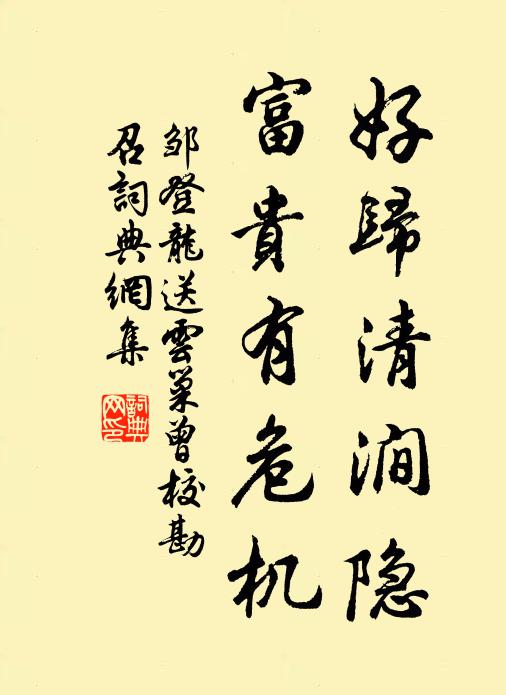 好歸清澗隐
富貴有危机
邹登龍送雲巢曾校勘
召詞典網集
詞典网印